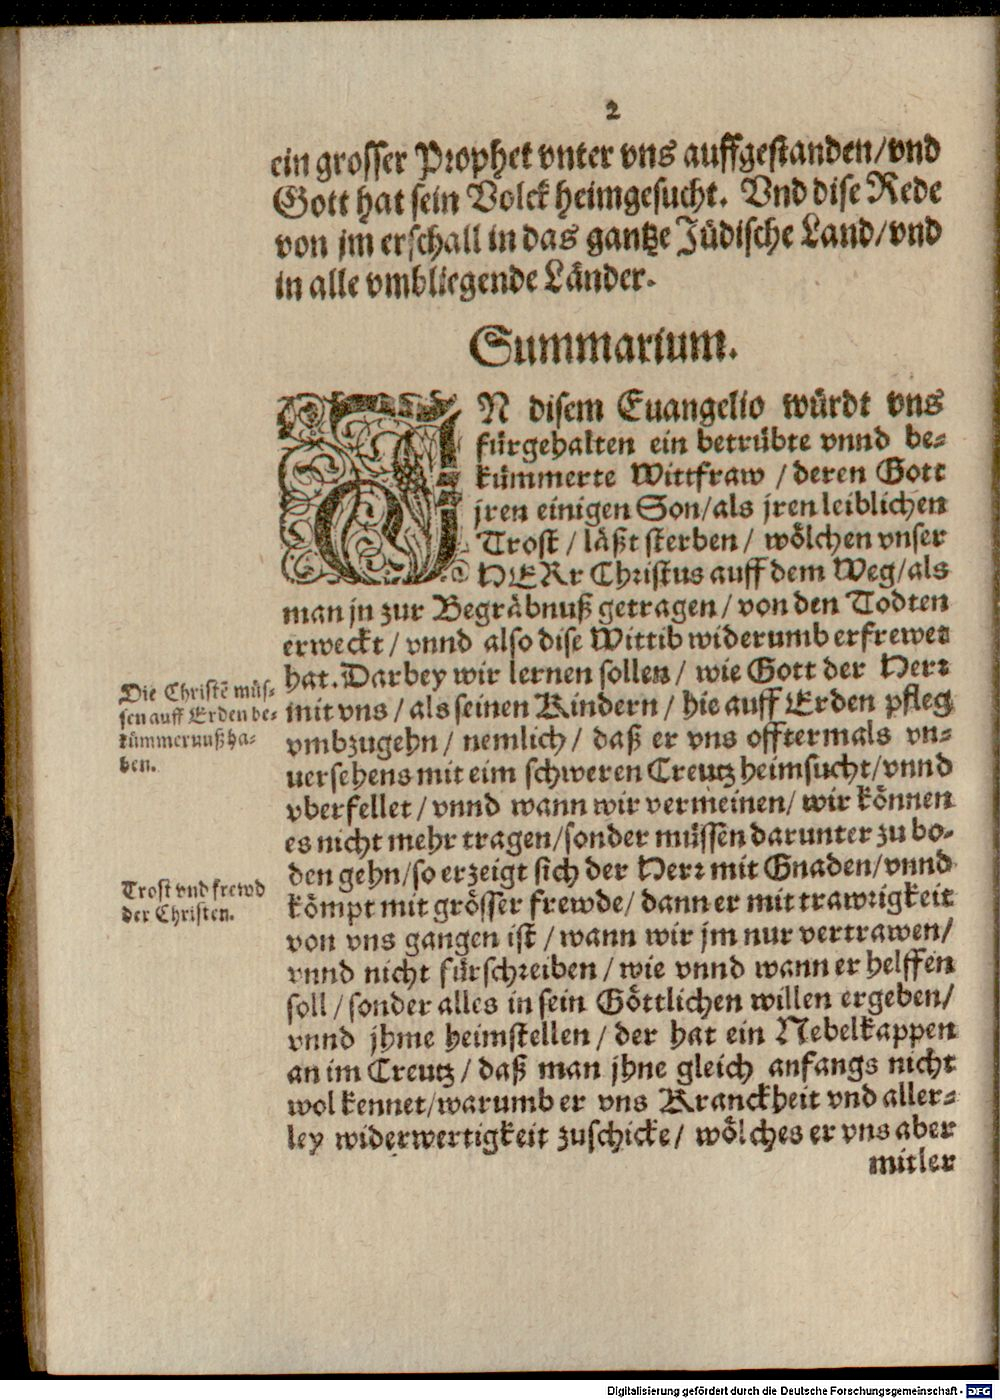 2
ein grosser Prophet vnter vns auffgestanden/vnd
Gott hat sein Volck heimgesucht. Vnd dise Rede
von jm erschall in das gantze Jüdische Land/vnd
in alle vmbliegende Länder.
Summarium.
IN disem Euangelio würdt vns
fürgehalten ein betrübte vnnd be-
kümmerte Wittfraw / deren Gott
jren einigen Son/als jren leiblichen
Trost / läßt sterben / wölchen vnser
HERr Christus auff dem Weg/als
man jn zur Begräbnuß getragen / von den Todten
erweckt / vnnd also dise Wittib widerumb erfrewet
hat. Darbey wir lernen sollen / wie Gott der Herr
mit vns / als seinen Kindern / hie auff Erden pfleg
vmbzugehn / nemlich / daß er vns offtermals vn-
uersehens mit eim schweren Creutz heimsucht/vnnd
vberfellet / vnnd wann wir vermeinen/ wir können
es nicht mehr tragen/sonder müssen darunter zu bo-
den gehn/so erzeigt sich der Herr mit Gnaden/vnnd
kömpt mit grösser frewde/ dann er mit trawrigkeit
von vns gangen ist / wann wir jm nur vertrawen/
vnnd nicht fürschreiben / wie vnnd wann er helffen
soll / sonder alles in sein Göttlichen willen ergeben/
vnnd jhme heimstellen / der hat ein Nebelkappen
an im Creutz / daß man jhne gleich anfangs nicht
wol kennet/warumb er vns Kranckheit vnd aller-
ley widerwertigkeit zuschicke/ wölches er vns aber
mitler
Die Christē müs-
sen auff Erden be-
kümmernuß ha-
ben.
Trost vnd frewd
der Christen.
Digitalisierung gefördert durch die Deutsche Forschungsgemeinschaft - DFG